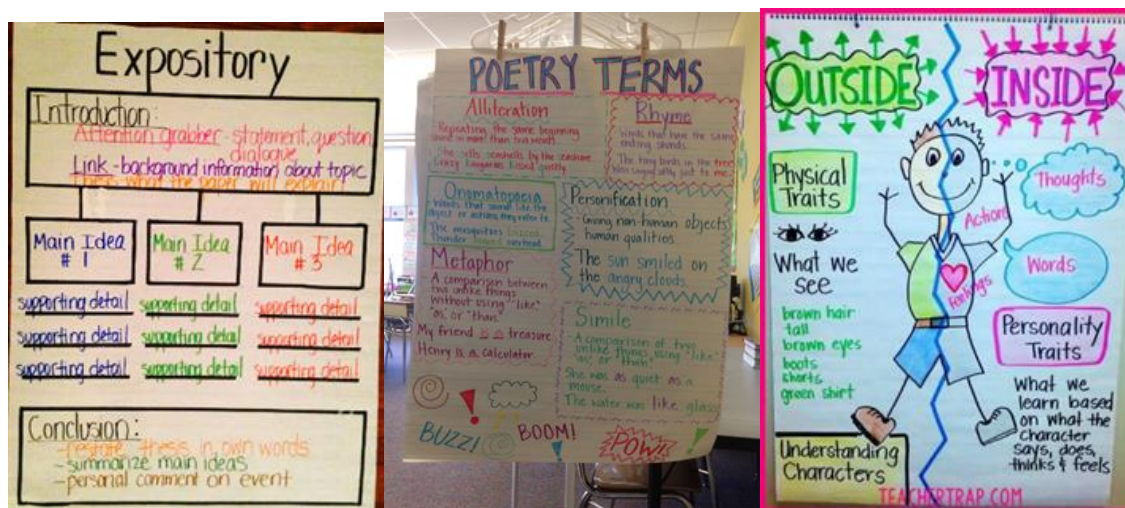 Expository
Introduction:
Attention grabber - statement, question,
dialogue
Link - background information about topic
Thesis - what the paper will explain
Main Idea
# 1
Main Idea
# 2
Main Idea
# 3
supporting detail
supporting detail
supporting detail
supporting detail
supporting detail
supporting detail
supporting detail
supporting detail
supporting detail
Conclusion:
- restate thesis in own words
- summarize main ideas
- personal comment on event
POETRY TERMS
Alliteration
Repeating the same beginning
sound in more than two words.
She sells seashells by the seashore
Crazy kangaroos kissed quietly
Rhyme
Words that have the same
ending sounds.
The tiny birds in the tree
Were singing softly just to me.
Onomatopoeia
Words that sound like the
object or actions they refer to.
The mosquitoes buzzed.
Thunder boomed overhead.
Personification
Giving non-human objects
human qualities.
The sun smiled on
the angry clouds.
Metaphor
A comparison between
two unlike things
without using "like"
"as" or "than"
My friend is a treasure
Henry is a calculator
Simile
A comparison of two
unlike things using "like"
"as" or "than"
She was as quiet as a
mouse.
The water was like glass
BUZZ!
BOOM!
POW!
OUTSIDE
INSIDE
Physical
Traits
What we
see
brown hair
tall
brown eyes
boots
shorts
green shirt
Understanding
Characters
Thoughts
Actions
Words
Feelings
Personality
Traits
What we
learn based
on what the
character
says, does,
thinks & feels
TEACHERTRAP.COM